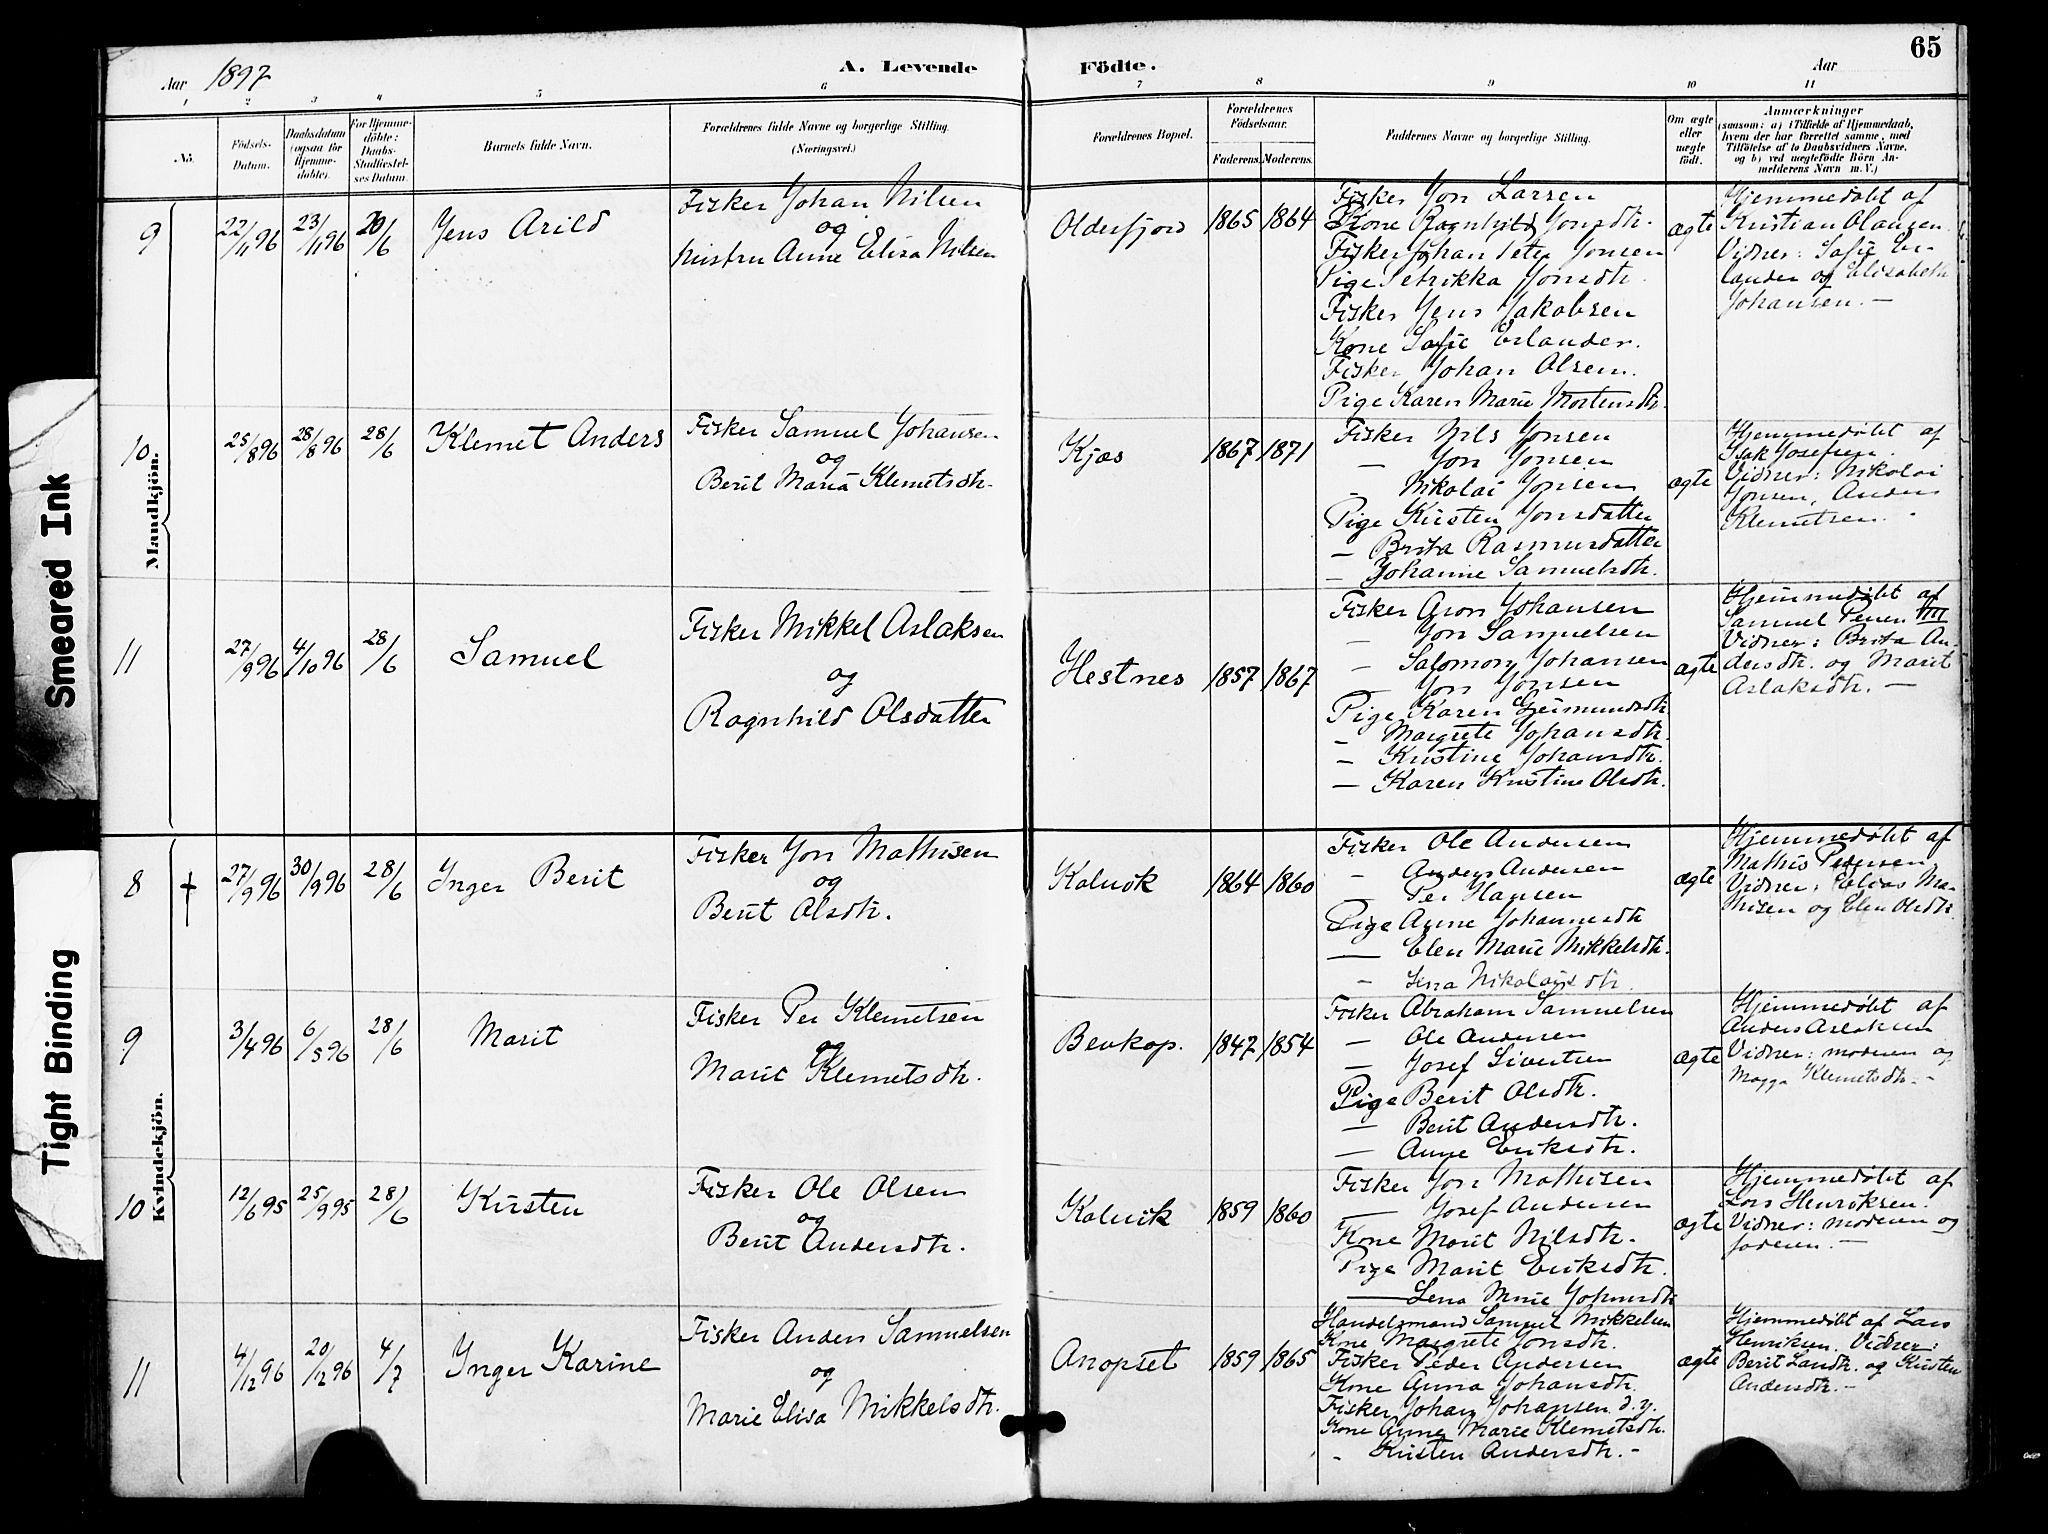 65
Aar 1897
A. Levende Födte.
Aar
1 2 3 4 5 6 7 8 9 10 11
No.
Födsels-
Datum.
Daabsdatum
(ogsaa for
Hjemme-
døbte).
For Hjemme-
döbte:
Daabs-
Stadfæstel-
ses Datum.
Barnets fulde Navn.
Forældrenes fulde Navne og borgerlige Stilling.
(Næringsvei.)
Forældrenes Bopæl.
Forældrenes
Födselsaar.
Faderens. Moderens.
Faddernes Navne og borgerlige Stilling.
Om ægte
eller
uægte
födt.
Anmærkninger
(saasom: a) i Tilfælde af Hjemmedaab,
hvem der har forrettet samme, med
Tilföielse af to Daabsvidners Navne,
og b) ved uægtefödte Börn An-
melderens Navn m. V.)
Mandkjön.
9
22/11 96
23/11 96
20/6
Jens Arild
Fisker Johan Nilsen
og
Hustru Anne Elisa Nilsen
Olderfjord
1865
1864
Fisker Jon Larsen
Kone Ragnhild Jonsdtr.
Fisker Johan Peter Jonsen
Pige Petrikka Jonsdtr.
Fisker Jens Jakobsen
Kone Sofie Erlander.
Fisker Johan Olsen.
Pige Karen Marie Mortensdtr.
ægte
Hjemmedøbt af
Kristian Olausen.
Vidner: Sofie Er-
lander og Elisabeth
Johansen. —
10
25/8 96
28/8 96
28/6
Klemet Anders
Fisker Samuel Johansen
og
Berit Maria Klemetsdtr.
Kjæs
1867
1871
Fisker Nils Jonsen
— Jon Jonsen
— Nikolai Jonsen
Pige Kirsten Jonsdatter
— Brita Rasmusdatter
— Johanne Samuelsdtr.
ægte
Hjemmedøbt af
Isak Josefsen.
Vidner: Nikolai
Jonsen, Anders
Klemetsen. -
11
27/9 96
4/10 96
28/6
Samuel
Fisker Mikkel Aslaksen
og
Ragnhild Olsdatter
Hestnes
1857
1867
Fisker Aron Johansen
— Jon Samuelsen
— Salomon Johansen
— Jon Jonsen
Pige Karen Geimundsdtr.
— Margrete Johansdtr.
— Kristine Johansdtr.
— Karen Kristine Olsdtr.
ægte
Hjemmedøbt af
Samuel Persen VIII
Vidner: Brita An-
dersdtr. og Marit
Aslaksdtr. —
Kvindekjön.
8
27/9 96
30/9 96
28/6
Inger Berit
Fisker Jon Mathisen
og
Berit Olsdtr.
Kolvik
1864
1860
Fisker Ole Andersen
— Anders Andersen
— Per Hansen
Pige Anne Johannesdtr
— Elen Marie Mikkelsdtr.
— Lena Nikolaisdtr.
ægte
Hjemmedøbt af
Mathis Pedersen
Vidner: Elias Ma-
thisen og Elen Olsdtr.
9
3/4 96
6/5 96
28/6
Marit
Fisker Per Klemetsen
og
Marit Klemetsdtr.
Bevkop.
1847
1854
Fisker Abraham Samuelsen
— Ole Andersen
— Josef Sivertsen
Pige Berit Olsdtr.
— Berit Andersdtr.
— Anne Eriksdtr.
ægte
Hjemmedøbt af
Anders Aslaksen
Vidner: moderen og
Magga Klemetsdtr. -
10
12/6 95
25/9 95
28/6
Kirsten
Fisker Ole Olsen
og
Berit Andersdtr.
Kolvik
1859
1860
Fisker Jon Mathisen
— Josef Andersen
Kone Marit Nilsdtr.
Pige Marit Eriksdtr.
— Lena Marie Johnsdtr
ægte
Hjemmedøbt af
Lars Henriksen.
Vidner: moderen og
faderen. —
11
4/12 96
20/12 96
4/7
Inger Karine
Fisker Anders Samuelsen
og
Marie Elisa Mikkelsdtr.
Anopset
1859
1865
Handelsmand Samuel Mikkelsen
Kone Margrete Jonsdtr.
Fisker Peder Andersen
Kone Anna Johansdtr.
Fisker Johan Johansen d. y.
Kone Anne Marie Klemetsdtr.
— Kirsten Andersdtr. -
ægte
Hjemmedøbt af Lars
Henriksen. Vidner:
Berit Larsdtr. og Kirsten
Andersdtr. —
Smeared Ink
Tight Binding